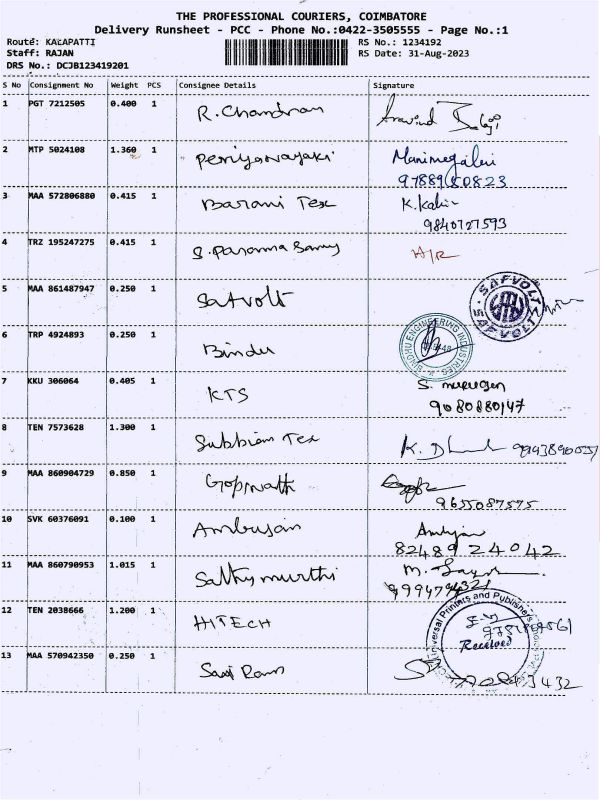 THE PROFESSIONAL COURIERS, COIMBATORE
Delivery Runsheet - PCC - Phone No.:0422-3505555 - Page No.:1
Route: KALAPATTI
RS No.: 1234192
Staff: RAJAN
RS Date: 31-Aug-2023
DRS No.: DCJB123419201
S No Consignment No Weight PCS Consignee Details Signature
1 PGT 7212505 0.400 1 R. Chandran Aravind
2 MTP 5024108 1.360 1 Periyanayaki Manimegalai
3 MAA 572806880 0.415 1 Barani Tex K.
9840727593
4 TRZ 195247275 0.415 1 S. H/R
5 MAA 861487947 0.250 1 Safvolt SAFVOLT SAFVOLT
6 TRP 4924893 0.250 1 Bindu SINDHU ENGINEERING INDUSTRIES
7 KKU 306064 0.405 1 KTS S. murugan
9080880147
8 TEN 7573628 1.300 1 Subbiam Tex K.
9 MAA 860904729 0.850 1 Gopinath
9655087575
10 SVK 60376091 0.100 1 Ambujan
8248924042
11 MAA 860790953 1.015 1 Sathymurthi M.
12 TEN 2038666 1.200 1 HITECH Universal Printers and Publishers
Received
13 MAA 570942350 0.250 1 Sai Ram